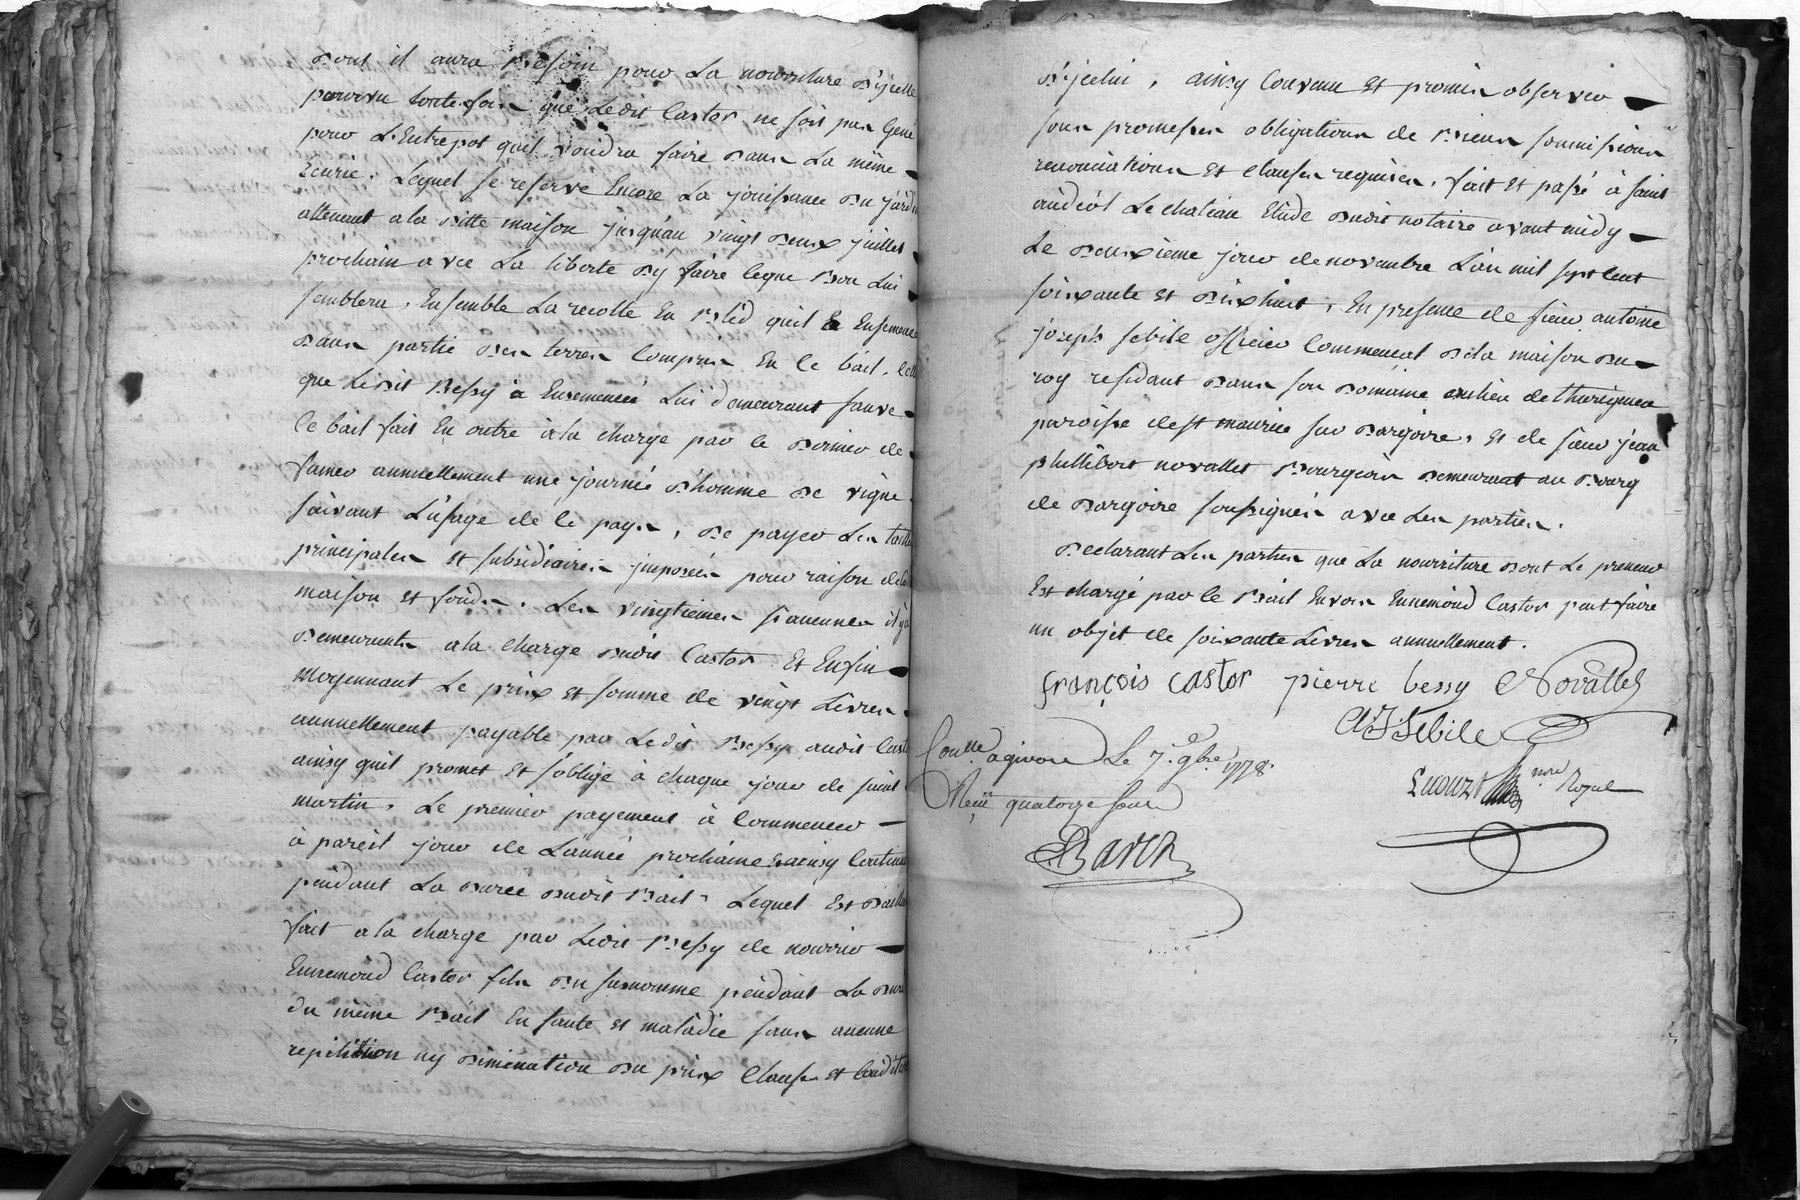 dont il aura besoin pour la nourriture d'jcelle
pourvu toute fois que ledit Castor ne soit pas Gené
pour L'Entrepot quil voudra faire dans la même
Ecurie. Lequel se reserve Encore La jouissance du jardin
attenant a la ditte maison jusqu'au vingt deux juillet
prochain avec La liberte d'y faire ceque bon Lui
semblera. Ensemble La recolte En bled quil a Ensemencé
dans partie des terres Compris En le bail. celle
que Ledit Bessy à Ensemencée Lui demeurant sauve
le bail fait En outre à la charge par le dernier de
famer annuellement une journée d'homme de vigne
suivant L'usage de le pays, de payer Les tailles
principales et subsidiaires jmposées pour raison de la
maison et fonds. Les vingtiemes si aucunes il y a
demeurants a la charge dudit Castor. Et Enfin
moyennant Le prix et somme de vingt Livres
annuellement payable par Ledit Bessy audit Castor
ainsy quil promet et s'oblige à chaque jour de saint
martin. Le premier payement à Commencer
à pareil jour de L'année prochaine & ainsy Continuer
pendant La duree dudit Bail. Lequel Est d'ailleurs
fait a la charge par Ledit Bessy de nourrir
Ennemond Castor fils du susnomme pendant La durée
du même Bail En sante et maladie sans aucune
repitition ny diminution du prix Clauses et Conditions
d'jcelui, ainsy Convenu et promis observer
sous promesses obligations de biens soumissions
renonciations et clauses requises. fait et passé à saint
andéol Le chateau Etude dudit notaire avant midy
Le deuxieme jour de novembre L'an mil sept cent
soixante et dix huit, En presence de sieur antoine
joseph sebile officier Commencal de la maison du
roy residant dans son domaine au lieu de thurigneu
paroisse de st maurice sur dargoire, et de sieur jean
phillibert novallet Bourgeois demeurant au Bourg
de dargoire soussignés avec Les parties.
Declarant Les parties que La nourriture dont Le preneur
Est chargé par le Bail Envers Ennemond Castor peut faire
un objet de soixante Livres annuellement.
françois castor pierre bessy Novallet
AJ Sebile
Conlle. a givors Le 7. 9bre 1778.
Reçu quatorze sous
nore Royal